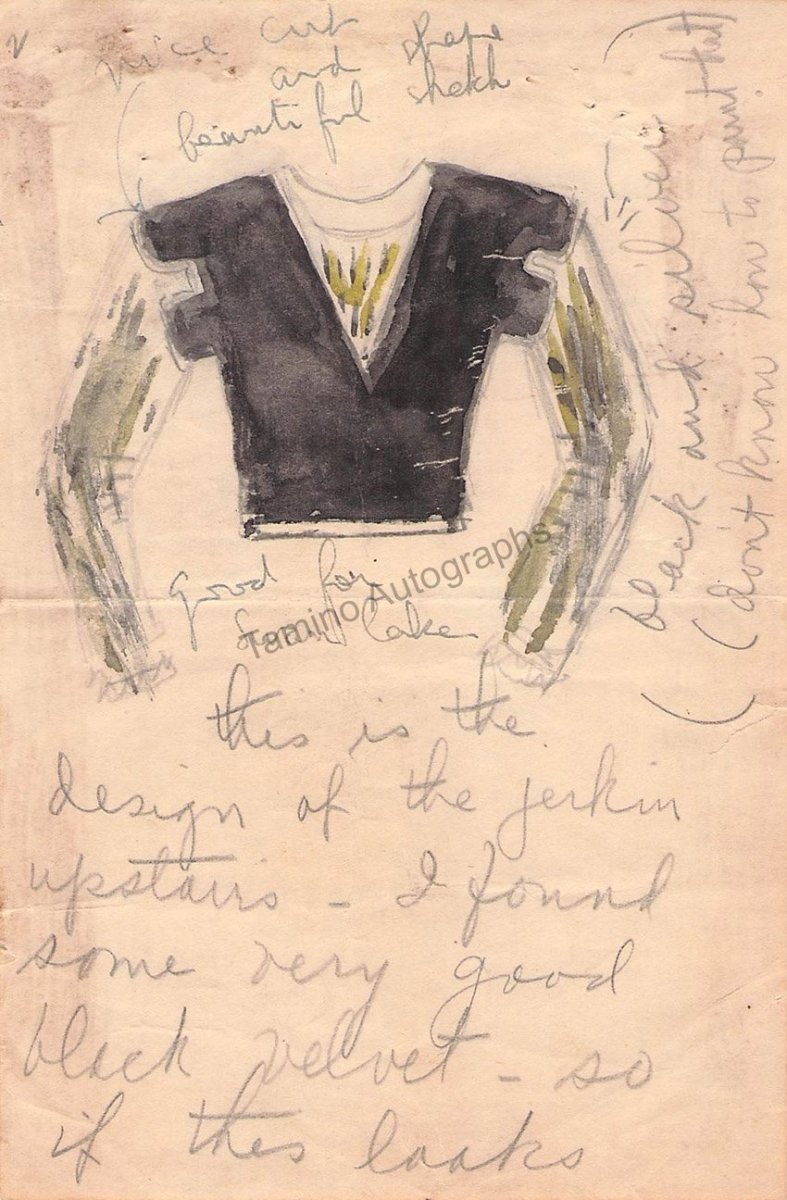 nice cut
and shape
beautiful sketch
black and silver
(don't know how to paint that)
good for
Swan Lake
Tamino Autographs
this is the
design of the jerkin
upstairs - I found
some very good
black velvet - so
if this looks